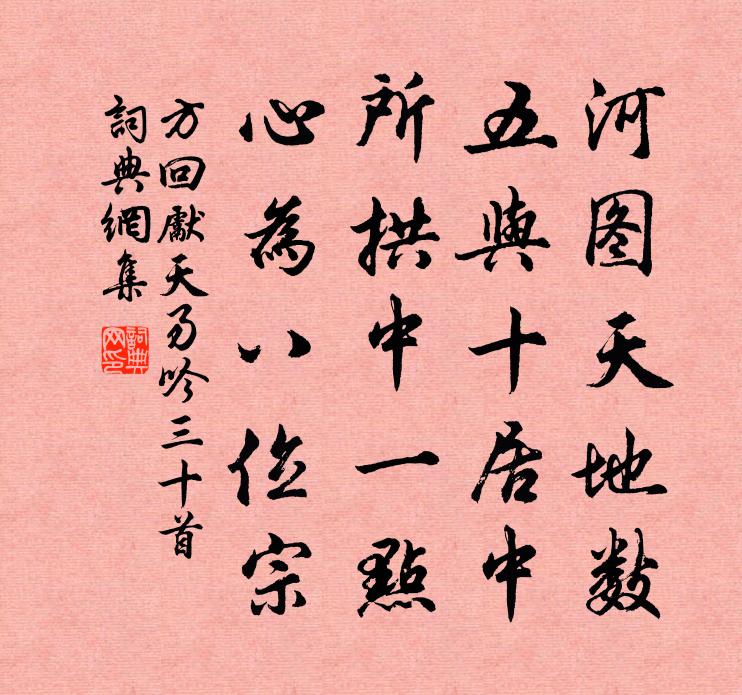 河图天地数
五與十居中
所拱中一點
心為八位宗
方回獻天易吟三十首
詞典網集
詞典网印